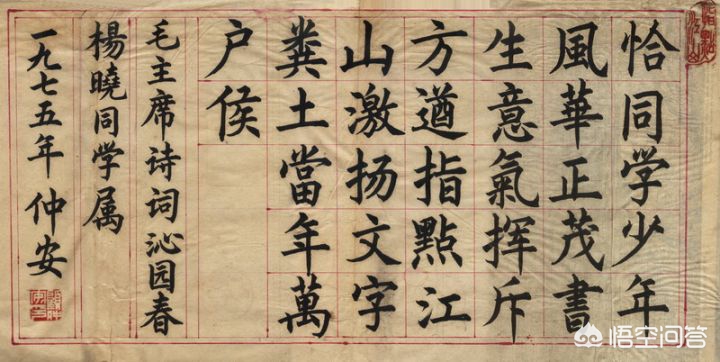 恰同学少年
風華正茂書
生意氣挥斥
方遒指點江
山激扬文字
糞土當年萬
户侯
毛主席诗词沁园春
楊曉同学属
一九七五年 仲安
悟空问答